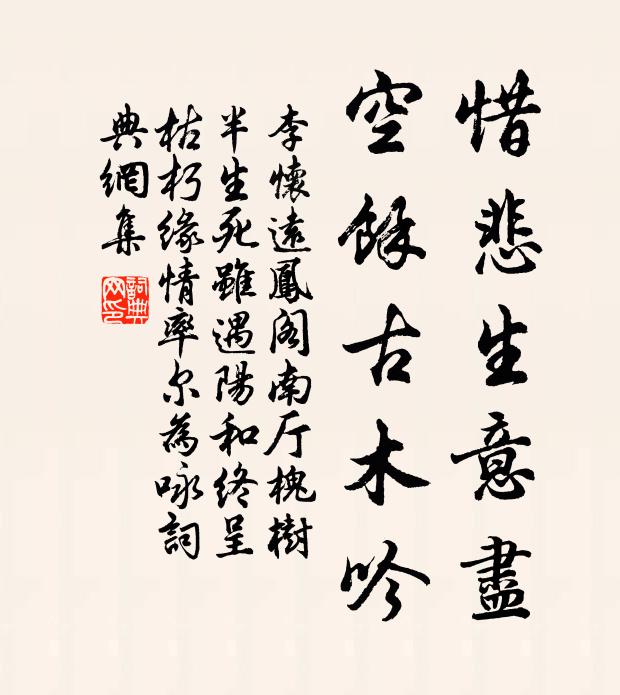 惜悲生意盡
空餘古木吟
李懷遠鳳阁南厅槐樹
半生死雖遇陽和終呈
枯朽緣情率尔為咏詞
典網集
詞典網印